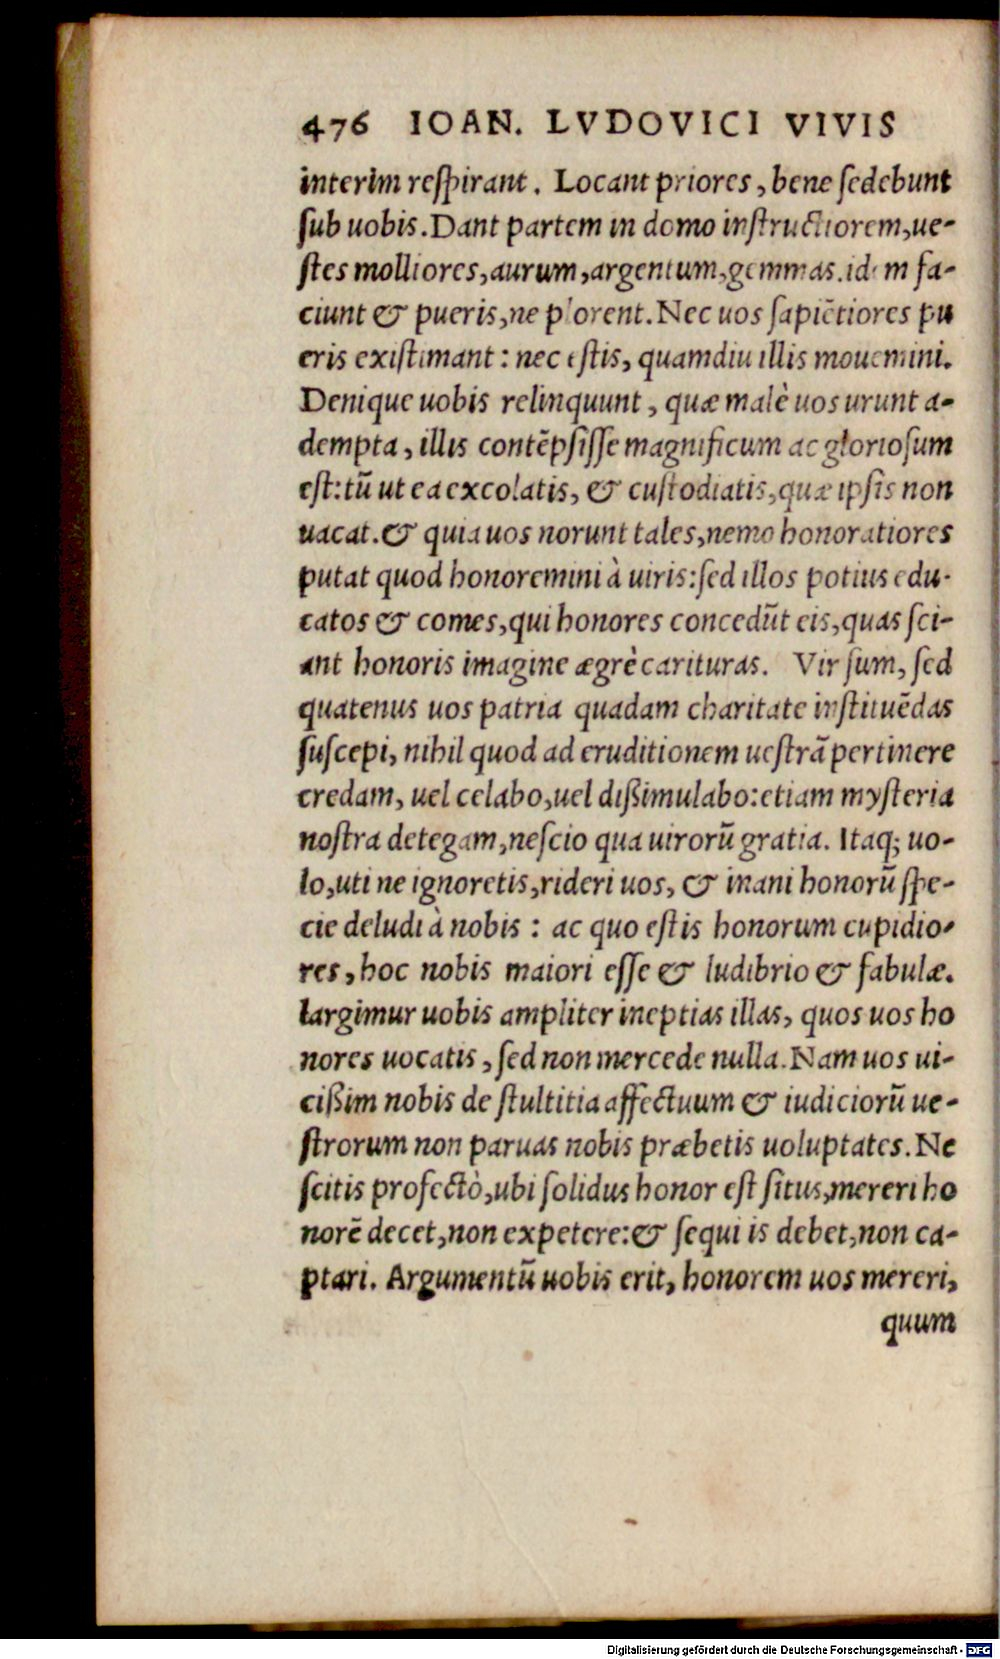 476 IOAN. LVDOVICI VIVIS
interim reſpirant. Locant priores, bene ſedebunt
ſub uobis. Dant partem in domo inſtructiorem, ue-
ſtes molliores, aurum, argentum, gemmas. idem fa-
ciunt & pueris, ne plorent. Nec uos ſapiẽtiores pu
eris exiſtimant: nec eſtis, quamdiu illis mouemini.
Denique uobis relinquunt, quæ malè uos urunt a-
dempta, illis contẽpſiſſe magnificum ac glorioſum
eſt: tũ ut ea excolatis, & cuſtodiatis, quæ ipſis non
uacat. & quia uos norunt tales, nemo honoratiores
putat quod honoremini à uiris: ſed illos potius edu-
catos & comes, qui honores concedũt eis, quas ſci-
ant honoris imagine ægrè carituras. Vir ſum, ſed
quatenus uos patria quadam charitate inſtituẽdas
ſuſcepi, nihil quod ad eruditionem ueſtrã pertinere
credam, uel celabo, uel dißimulabo: etiam myſteria
noſtra detegam, neſcio qua uirorũ gratia. Itaq; uo-
lo, uti ne ignoretis, rideri uos, & inani honorũ ſpe-
cie deludi à nobis: ac quo eſtis honorum cupidio-
res, hoc nobis maiori eſſe & ludibrio & fabulæ.
largimur uobis ampliter ineptias illas, quos uos ho
nores uocatis, ſed non mercede nulla. Nam uos ui-
cißim nobis de ſtultitia affectuum & iudiciorũ ue-
ſtrorum non paruas nobis præbetis uoluptates. Ne
ſcitis profectò, ubi ſolidus honor eſt ſitus, mereri ho
norẽ decet, non expetere: & ſequi is debet, non ca-
ptari. Argumentũ uobis erit, honorem uos mereri,
quum
Digitalisierung gefördert durch die Deutsche Forschungsgemeinschaft - DFG